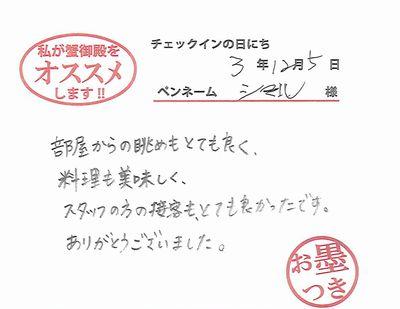 私が蟹御殿を
オススメ
します!!
チェックインの日にち
3 年 12 月 5 日
ペンネーム シマル 様
部屋からの眺めもとても良く、
料理も美味しく、
スタッフの方の接客も、とても良かったです。
ありがとうございました。
お墨
つき